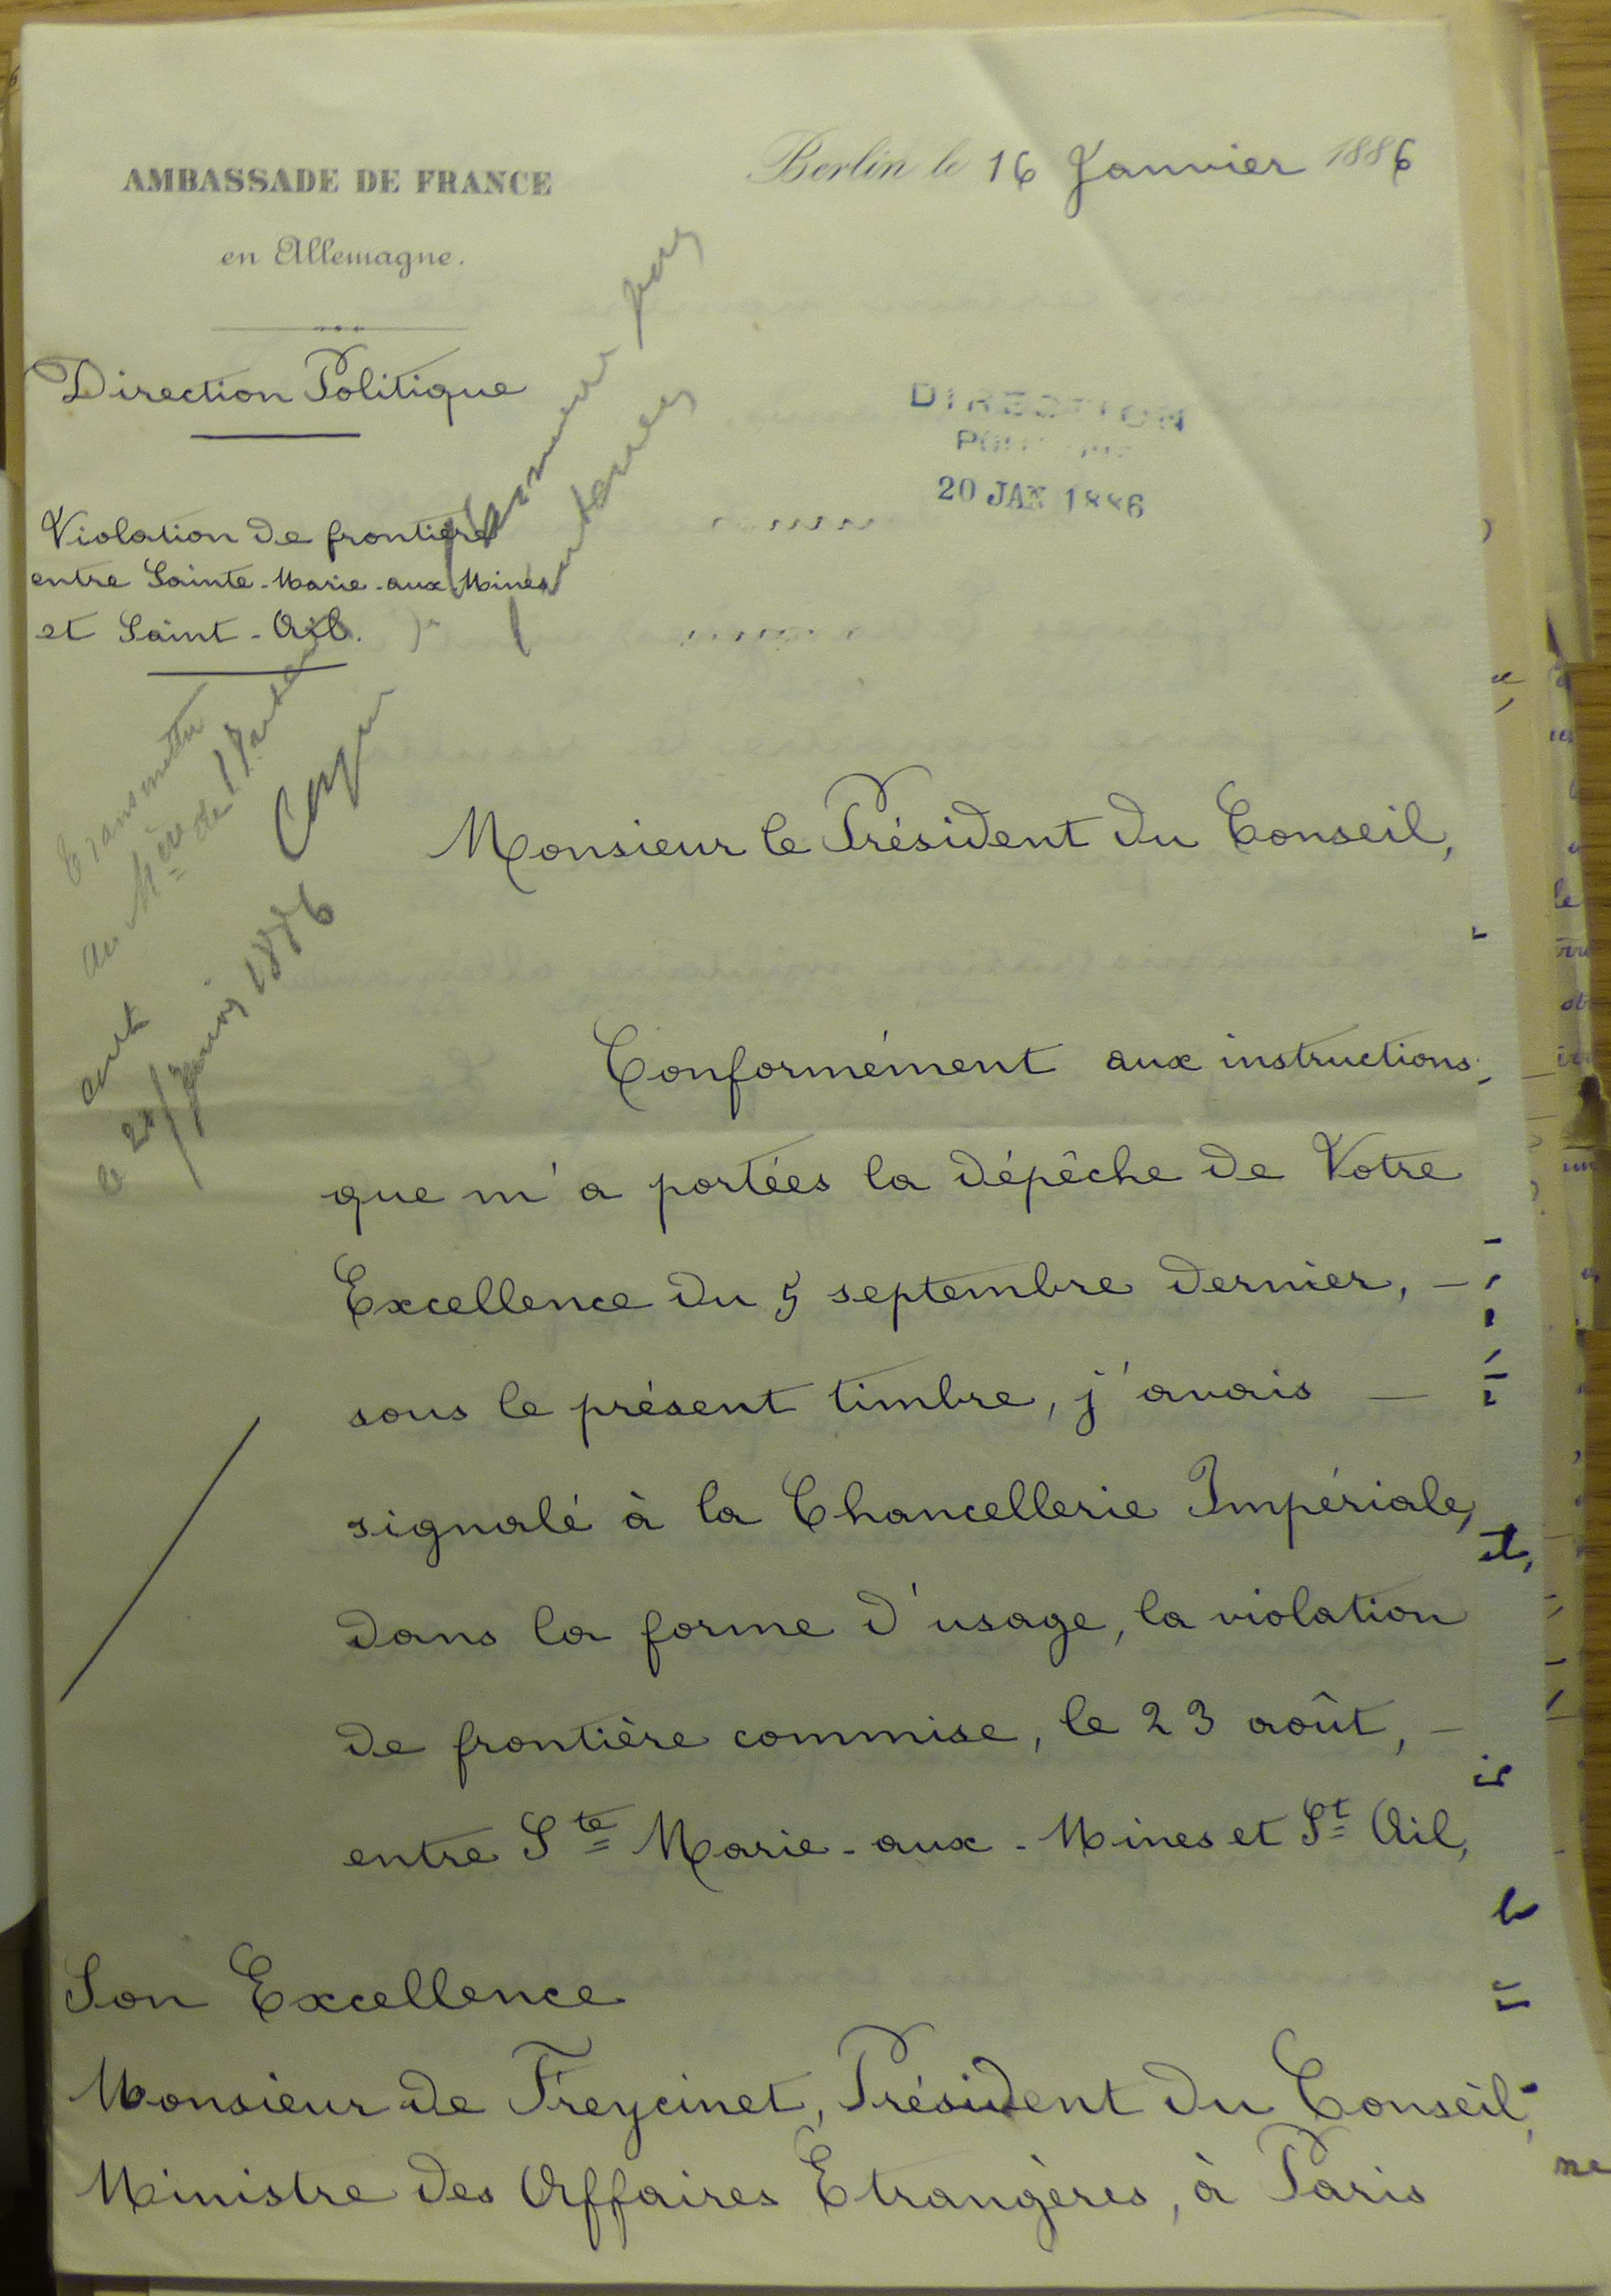 AMBASSADE DE FRANCE
en Allemagne.
Berlin le 16 Janvier 1886
Direction Politique
DIRECTION
20 JAN 1886
Violation de frontière
entre Sainte-Marie-aux-Mines
et Saint-Ail.
Transmettre
au Mère de
Copie
le 21 Janvier 1886
Monsieur le Président du Conseil,
Conformément aux instructions
que m'a portées la dépêche de Votre
Excellence du 5 septembre dernier, —
sous le présent timbre, j'avais —
signalé à la Chancellerie Impériale,
dans la forme d'usage, la violation
de frontière commise, le 23 août, —
entre Ste Marie-aux-Mines et St Ail,
Son Excellence
Monsieur de Freycinet, Président du Conseil,
Ministre des Affaires Etrangères, à Paris